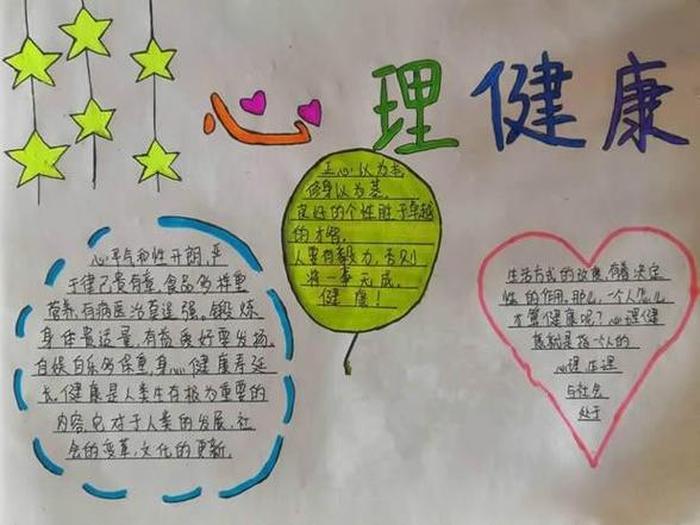 心理健康
正心以为本,
修身以为基。
良好的个性胜于卓越
的才智。
人要有毅力,否则
将一事无成。
健康!
心平气和性开朗,严
于律己贵有章,食品多样要
营养,有病医治莫逞强。锻炼
身体贵适量,有益爱好要发扬。
自娱自乐多保重,身心健康寿延
长。健康是人类生存极为重要的
内容,它对于人类的发展,社
会的变革,文化的更新,
生活方式的改变,有着决定
性的作用。那么,一个人怎么
才算健康呢?心理健
康就是指个人的
心理,在理
与社会
处于